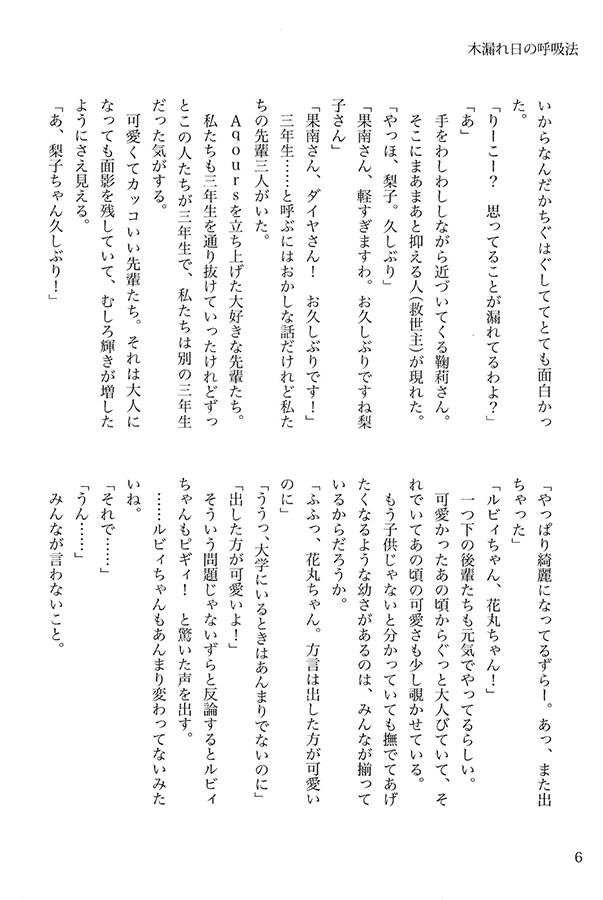 木漏れ日の呼吸法
いからなんだかちぐはぐしててとても面白かっ
た。
「りーこー？　思ってることが漏れてるわよ？」
「あ」
　手をわしわししながら近づいてくる鞠莉さん。
　そこにまあまあと抑える人(救世主)が現れた。
「やっほ、梨子。久しぶり」
「果南さん、軽すぎますわ。お久しぶりですね梨
子さん」
「果南さん、ダイヤさん！　お久しぶりです！」
　三年生……と呼ぶにはおかしな話だけれど私た
ちの先輩三人がいた。
　Aqoursを立ち上げた大好きな先輩たち。
　私たちも三年生を通り抜けていったけれどずっ
とこの人たちが三年生で、私たちは別の三年生
だった気がする。
　可愛くてカッコいい先輩たち。それは大人に
なっても面影を残していて、むしろ輝きが増した
ようにさえ見える。
「あ、梨子ちゃん久しぶり！」
「やっぱり綺麗になってるずらー。あっ、また出
ちゃった」
「ルビィちゃん、花丸ちゃん！」
　一つ下の後輩たちも元気でやってるらしい。
　可愛かったあの頃からぐっと大人びていて、そ
れでいてあの頃の可愛さも少し覗かせている。
　もう子供じゃないと分かっていても撫でてあげ
たくなるような幼さがあるのは、みんなが揃って
いるからだろうか。
「ふふっ、花丸ちゃん。方言は出した方が可愛い
のに」
「ううっ、大学にいるときはあんまりでないのに」
「出した方が可愛いよ！」
　そういう問題じゃないずらと反論するとルビィ
ちゃんもピギィ！　と驚いた声を出す。
　……ルビィちゃんもあんまり変わってないみた
いね。
「それで……」
「うん……」
　みんなが言わないこと。
6